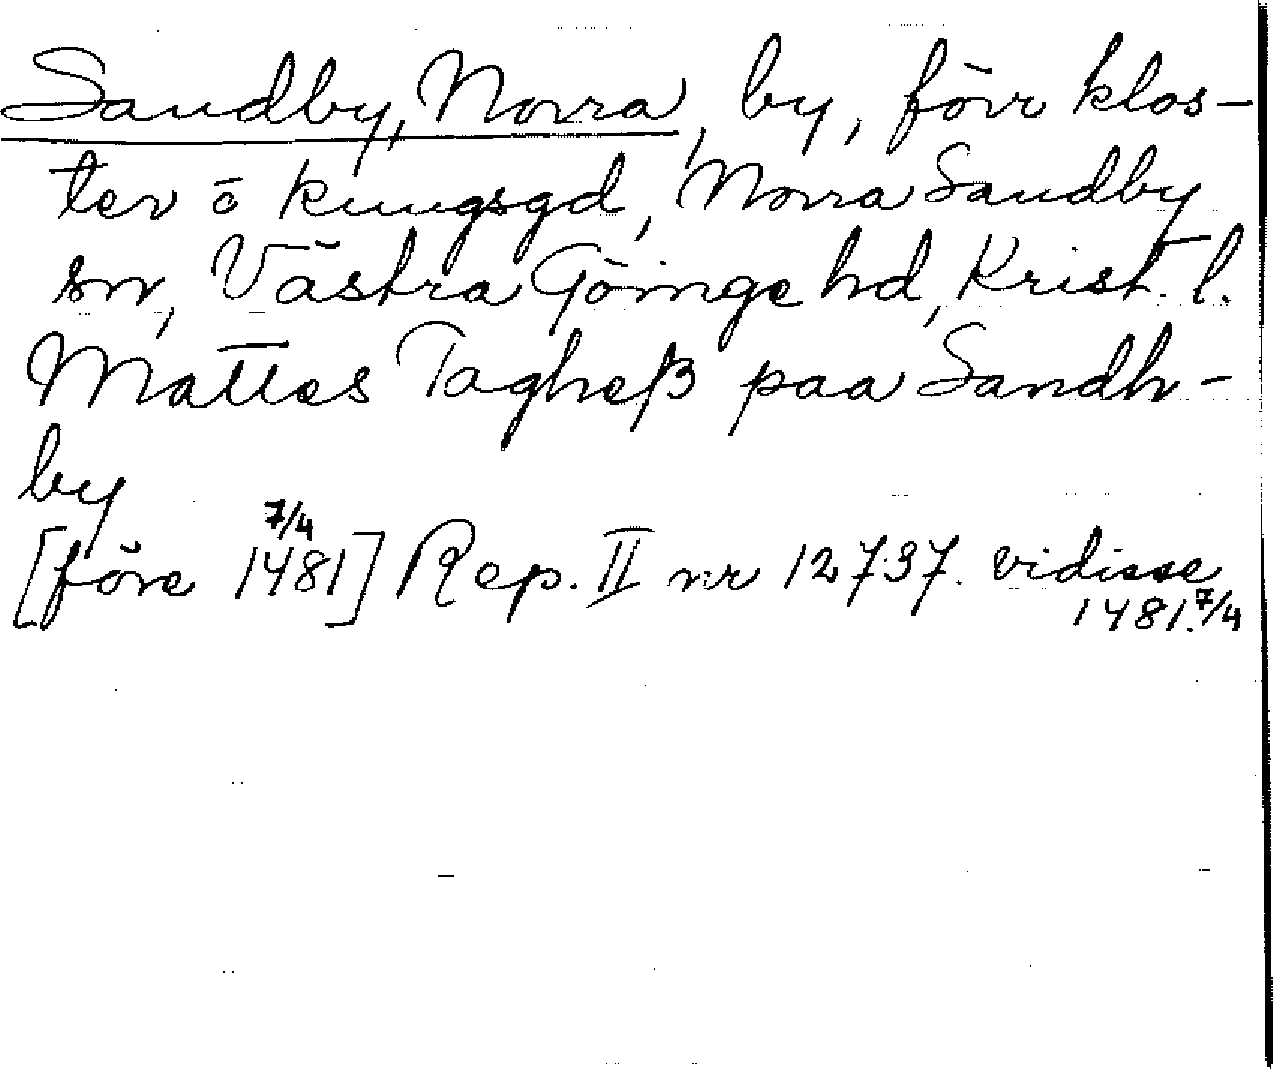 Sandby, Norra, by, förr klos-
ter o kungsgd, Norra Sandby
sn, Västra Göinge hd, Krist. l.
Mattes Tagheß paa Sandh-
by
[före 1481 7/4] Rep. II nr 12737. vidisse
1481.7/4